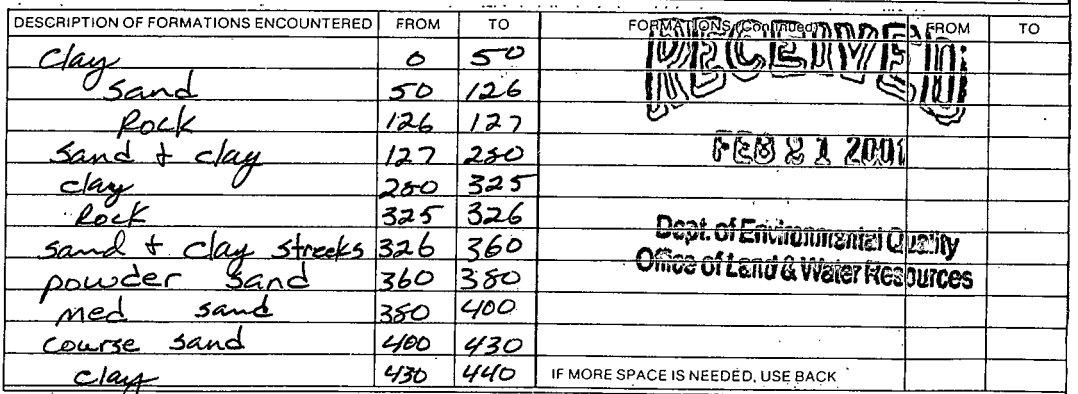 DESCRIPTION OF FORMATIONS ENCOUNTERED FROM TO FORMATIONS (Continued) FROM TO
Clay 0 50
Sand 50 126
Rock 126 127
Sand + clay 127 280
clay 280 325
Rock 325 326
sand + clay streeks 326 360
powder sand 360 380
med sand 380 400
course sand 400 430
clay 430 440
RECEIVED
FEB 21 2001
Dept. of Environmental Quality
Office of Land & Water Resources
IF MORE SPACE IS NEEDED, USE BACK